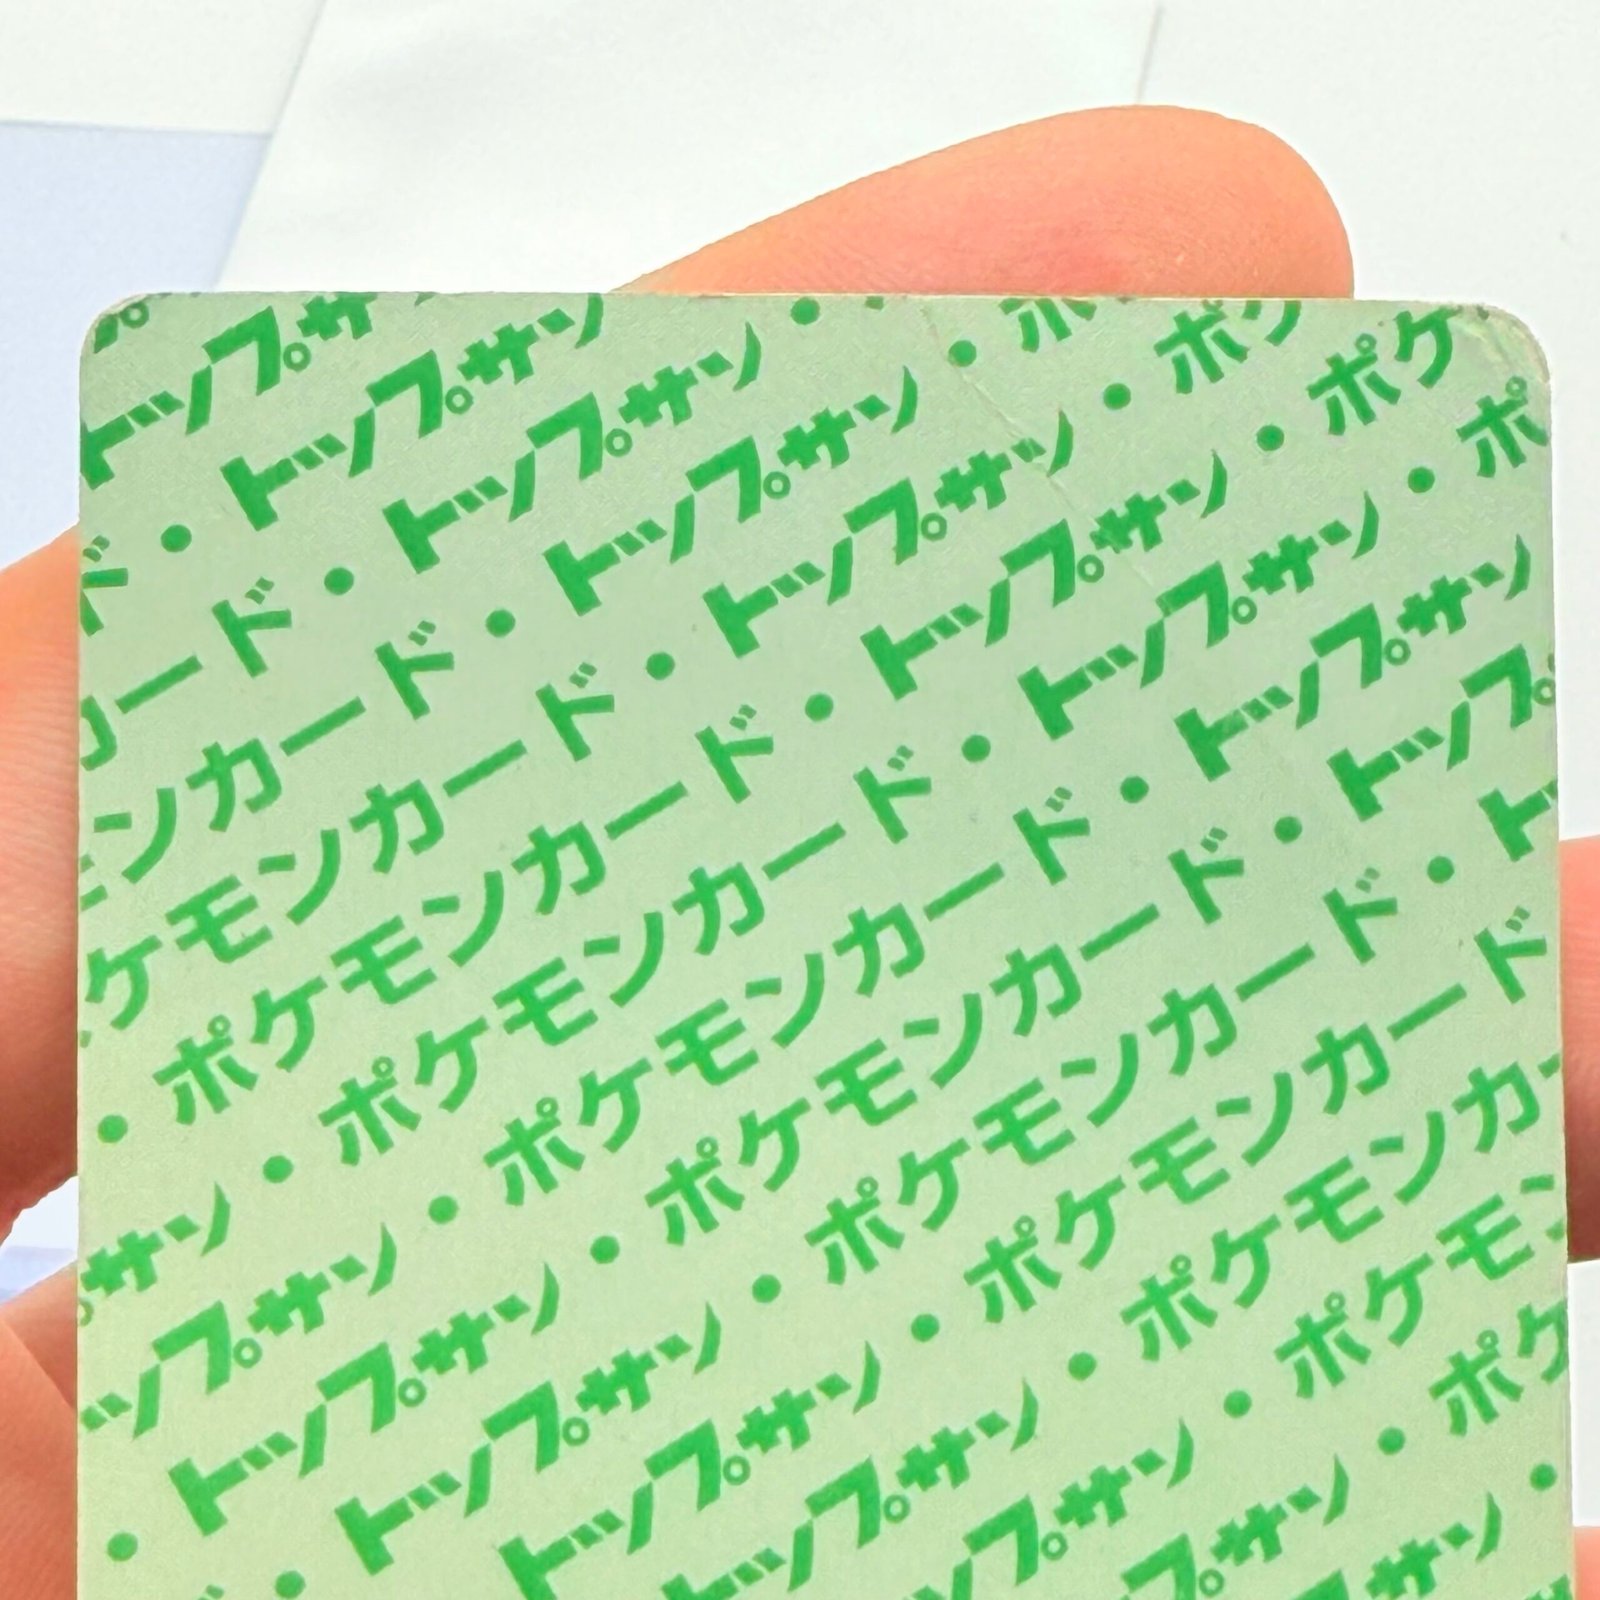 トップサ
ド・トップサン
カード・トップサン・
ンカード・トップサン・ポ
ケモンカード・トップサン・ポケ
・ポケモンカード・トップサン・ポケ
サン・ポケモンカード・トップサン・ポ
ップサン・ポケモンカード・トップサン
・トップサン・ポケモンカード・トップ
・トップサン・ポケモンカード・ト
トップサン・ポケモンカード
トップサン・ポケモンカー
プサン・ポケモン
プサン・ポケ
サン・